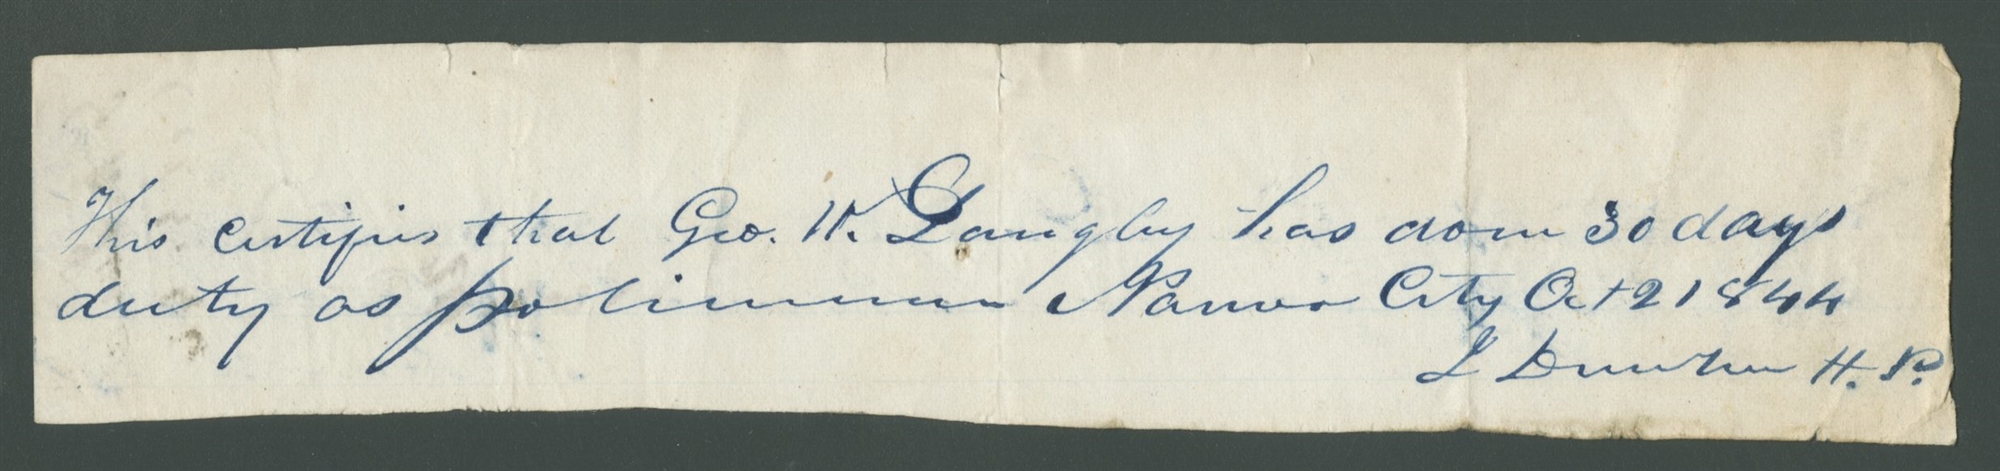 This certifies that Geo. W. Langley has done 30 days
duty as policeman Nauvoo City Oct 2 1844
J Dunham H. P.